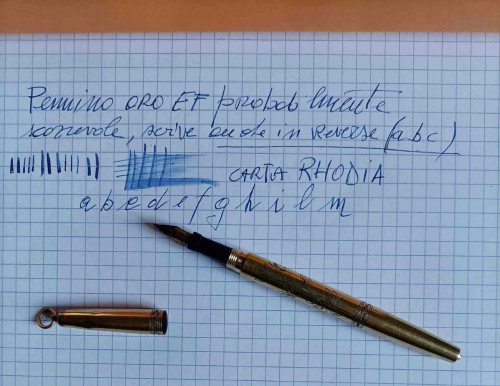 Pennino ORO EF probabilmente
scorrevole, scrive anche in reverse (abc)
CARTA RHODIA
a b c d e f g h i l m